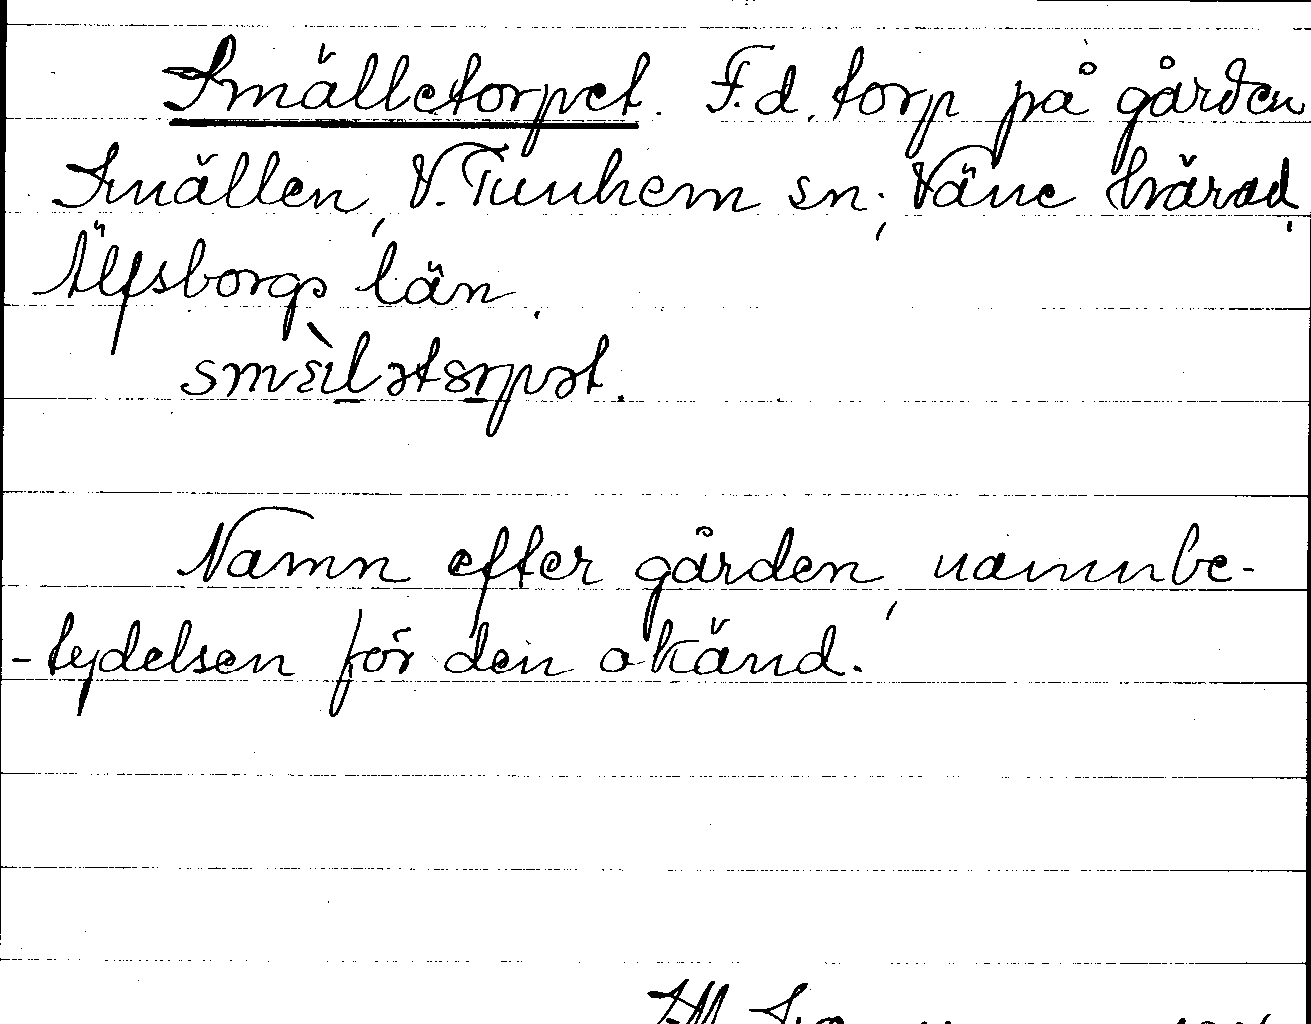 Smälletorpet. F.d. torp på gården
Smällen, V. Tunhem sn; Väne härad,
Älfsborgs län.
smɛ̀lətɔrpət.
Namn efter gården, namnbe-
-tydelsen för den okänd.